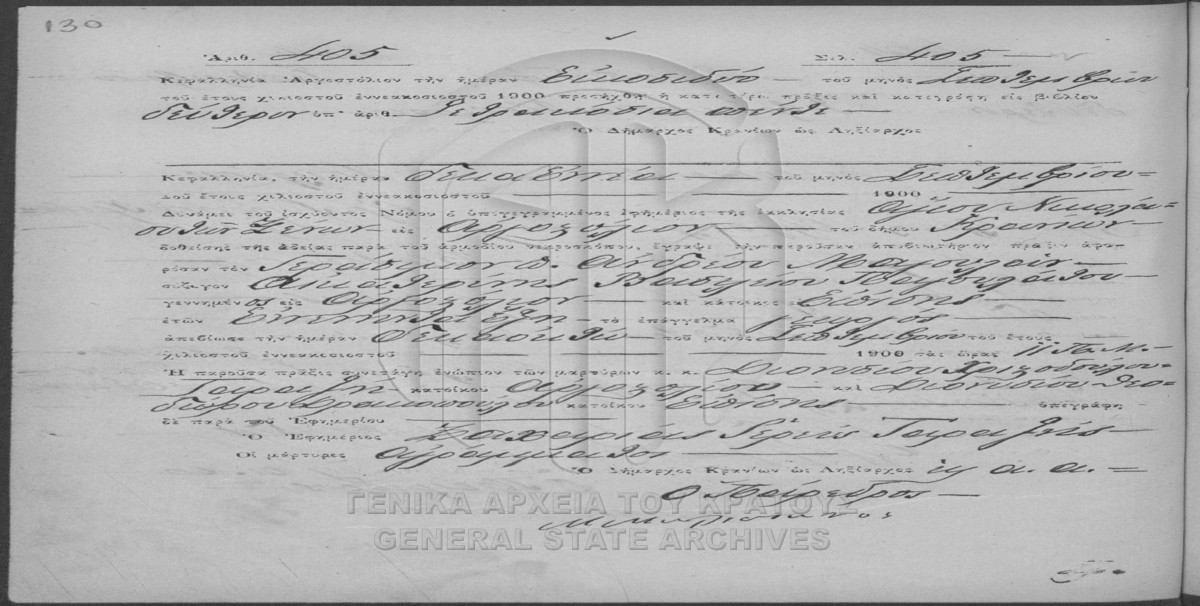 130
Ἀριθ. 405 Σελ. 405
Κεφαλληνία Ἀργοστόλιον τὴν ἡμέραν Εἰκοσιδύο τοῦ μηνὸς Σεπτεμβρίου
τοῦ ἔτους χιλιοστοῦ ἐννεακοσιοστοῦ 1900 προσήχθη ἡ κατωτέρω πρᾶξις καὶ κατεχωρήθη εἰς βιβλίον
δεύτερον ὑπ' ἀριθ. Τετρακόσια πέντε
Ὁ Δήμαρχος Κρανίων ὡς Ληξίαρχος
Κεφαλληνία, τὴν ἡμέραν δεκαεννέα τοῦ μηνὸς Σεπτεμβρίου
τοῦ ἔτους χιλιοστοῦ ἐννεακοσιοστοῦ 1900
Δυνάμει τοῦ ἰσχύοντος Νόμου ὁ ὑπογεγραμμένος ἐφημέριος τῆς ἐκκλησίας Ἁγίου Νικολά-
ου τῶν Ξένων εἰς Ἀργοστόλιον τοῦ δήμου Κρανίων
δοθείσης τῆς ἀδείας παρὰ τοῦ ἁρμοδίου νεκροσκόπου, ἔγραψε τὴν παροῦσαν ἀποβιωτήριον πρᾶξιν ἀφο-
ρῶσαν τὸν Γεράσιμον π. Ἀνδρέα
σύζυγον Αἰκατερίνης Βασιλείου
γεννημένος εἰς Ἀργοστόλιον καὶ κάτοικος Ἐπίσης
ἐτῶν τὸ ἐπάγγελμα
ἀπεβίωσε τὴν ἡμέραν δεκαοκτὼ τοῦ μηνὸς Σεπτεμβρίου τοῦ ἔτους
χιλιοστοῦ ἐννεακοσιοστοῦ 1900 τὰς ὥρας 11 π.μ.
Ἡ παροῦσα πρᾶξις συνετάγη ἐνώπιον τῶν μαρτύρων κ. κ. Διονυσίου Χριστοδούλου
κατοίκου Ἀργοστολίου καὶ Διονυσίου Θεο-
δώρου κατοίκου Ἐπίσης ὑπεγράφη
δὲ παρὰ τοῦ Ἐφημερίου
Ὁ Ἐφημέριος Ζαχαρίας Ἱερεὺς
Οἱ μάρτυρες ἀγράμματοι
Ὁ Δήμαρχος Κρανίων ὡς Ληξίαρχος κ. α. α.
Ὁ Πάρεδρος
ΓΕΝΙΚΑ ΑΡΧΕΙΑ ΤΟΥ ΚΡΑΤΟΥΣ
GENERAL STATE ARCHIVES